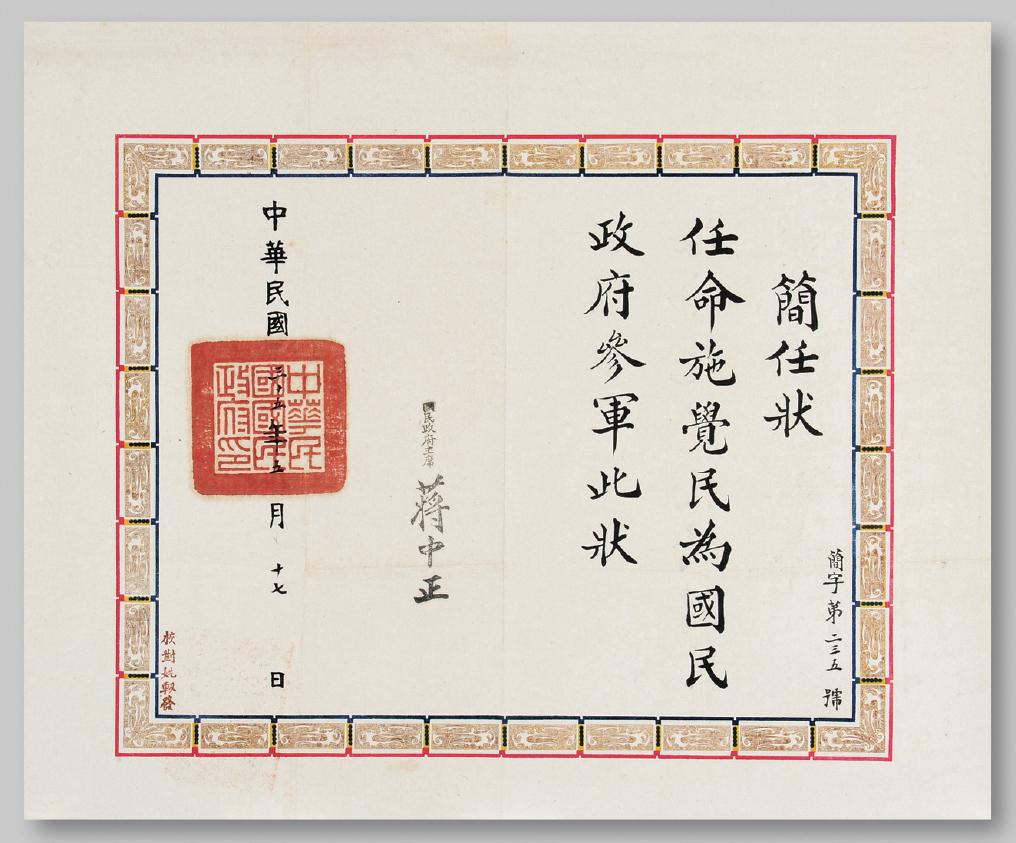 簡任狀
任命施覺民為國民
政府參軍此狀
簡字第二三五號
國民政府主席
蔣中正
中華民國三十五年五月十七日
中華民國國民政府印
校對姚